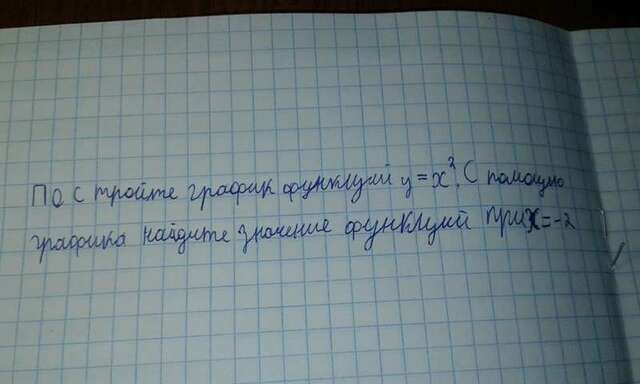 Постройте график функций y = x². С помощью
графика найдите значение функций при x = -2